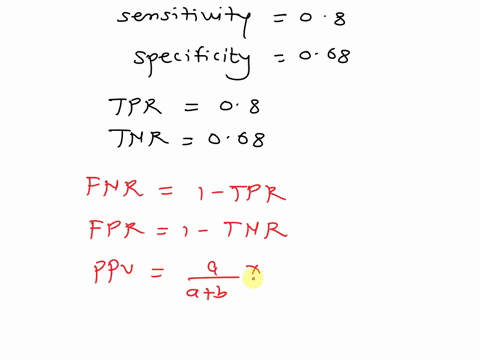 sensitivity = 0.8
specificity = 0.68
TPR = 0.8
TNR = 0.68
FNR = 1 - TPR
FPR = 1 - TNR
PPV = a/(a+b) ×